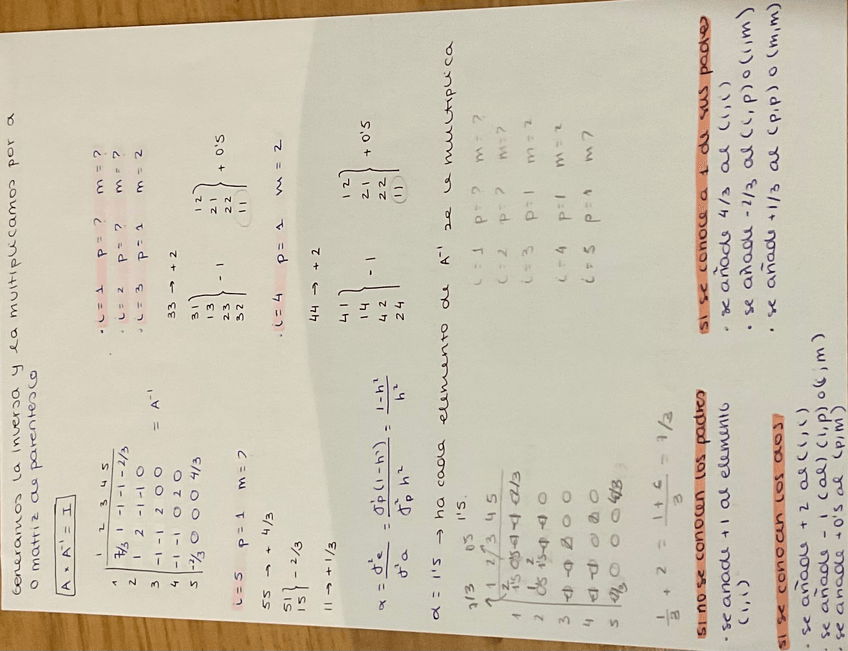 Generamos la inversa y la multiplicamos por α
o matriz de parentesco
A × A⁻¹ = I
1 2 3 4 5
1 7/3 1 -1 -1 -2/3
2 1 2 -1 -1 0
3 -1 -1 2 0 0 = A⁻¹
4 -1 -1 0 2 0
5 -2/3 0 0 0 4/3
· i=1 p=? m=?
· i=2 p=? m=?
· i=3 p=1 m=2
33 → +2
31
13
23
32 } -1
12
21
22
11 } +0'5
i=5 p=1 m=?
55 → + 4/3
51
15 } -2/3
11 → +1/3
· i=4 p=1 m=2
44 → +2
41
14
42
24 } -1
12
21
22
11 } +0'5
α = σ²e / σ²a = σ²p(1-h²) / σ²p h² = 1-h² / h²
α = 1'5 → ha cada elemento de A⁻¹ se le multiplica
1'5.
7/3 05 1'5
1 2 3 4 5
1
2
3
4
5
i=1 p=? m=?
i=2 p=? m=?
i=3 p=1 m=2
i=4 p=1 m=2
i=5 p=1 m?
1/3 + 2 = 1+6 / 3 = 7/3
si no se conocen los padres
· se añade +1 al elemento
(i,i)
si se conocen los dos
· se añade +2 al (i,i)
· se añade -1 (al) (i,p) o (i,m)
· se añade +0's al (p,m)
si se conoce a 1 de sus padres
· se añade 4/3 al (i,i)
· se añade -2/3 al (i,p) o (i,m)
· se añade +1/3 al (p,p) o (m,m)